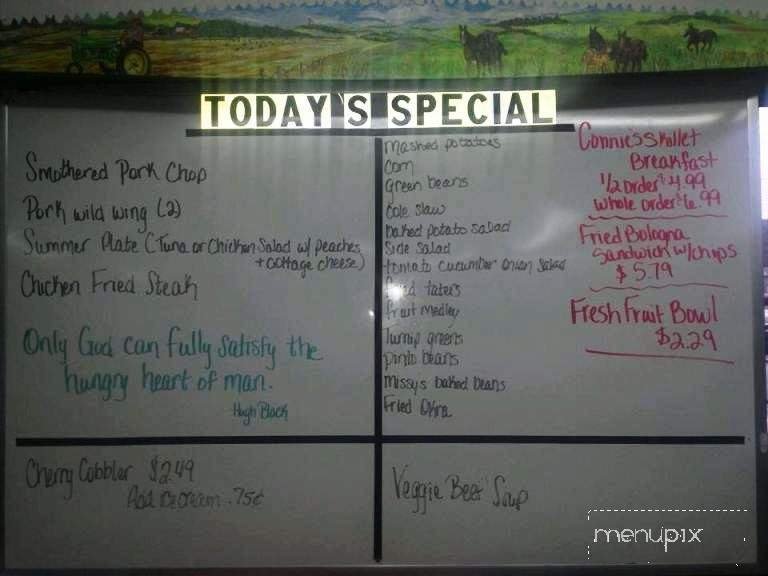 TODAY'S SPECIAL
Smothered Pork Chop
Pork wild wing (2)
Summer Plate (Tuna or Chicken Salad w/ peaches
+ cottage cheese)
Chicken Fried Steak
Only God can fully satisfy the
hungry heart of man.
Hugh Black
mashed potatoes
corn
green beans
cole slaw
baked potato salad
side salad
tomato cucumber onion salad
fried taters
fruit medley
turnip greens
pinto beans
missys baked beans
Fried Okra
Connie's Skillet
Breakfast
1/2 order $4.99
whole order $6.99
Fried Bologna
Sandwich w/chips
$5.79
Fresh Fruit Bowl
$2.29
Cherry Cobbler $2.49
Add ice cream .75¢
Veggie Beef Soup
menupix